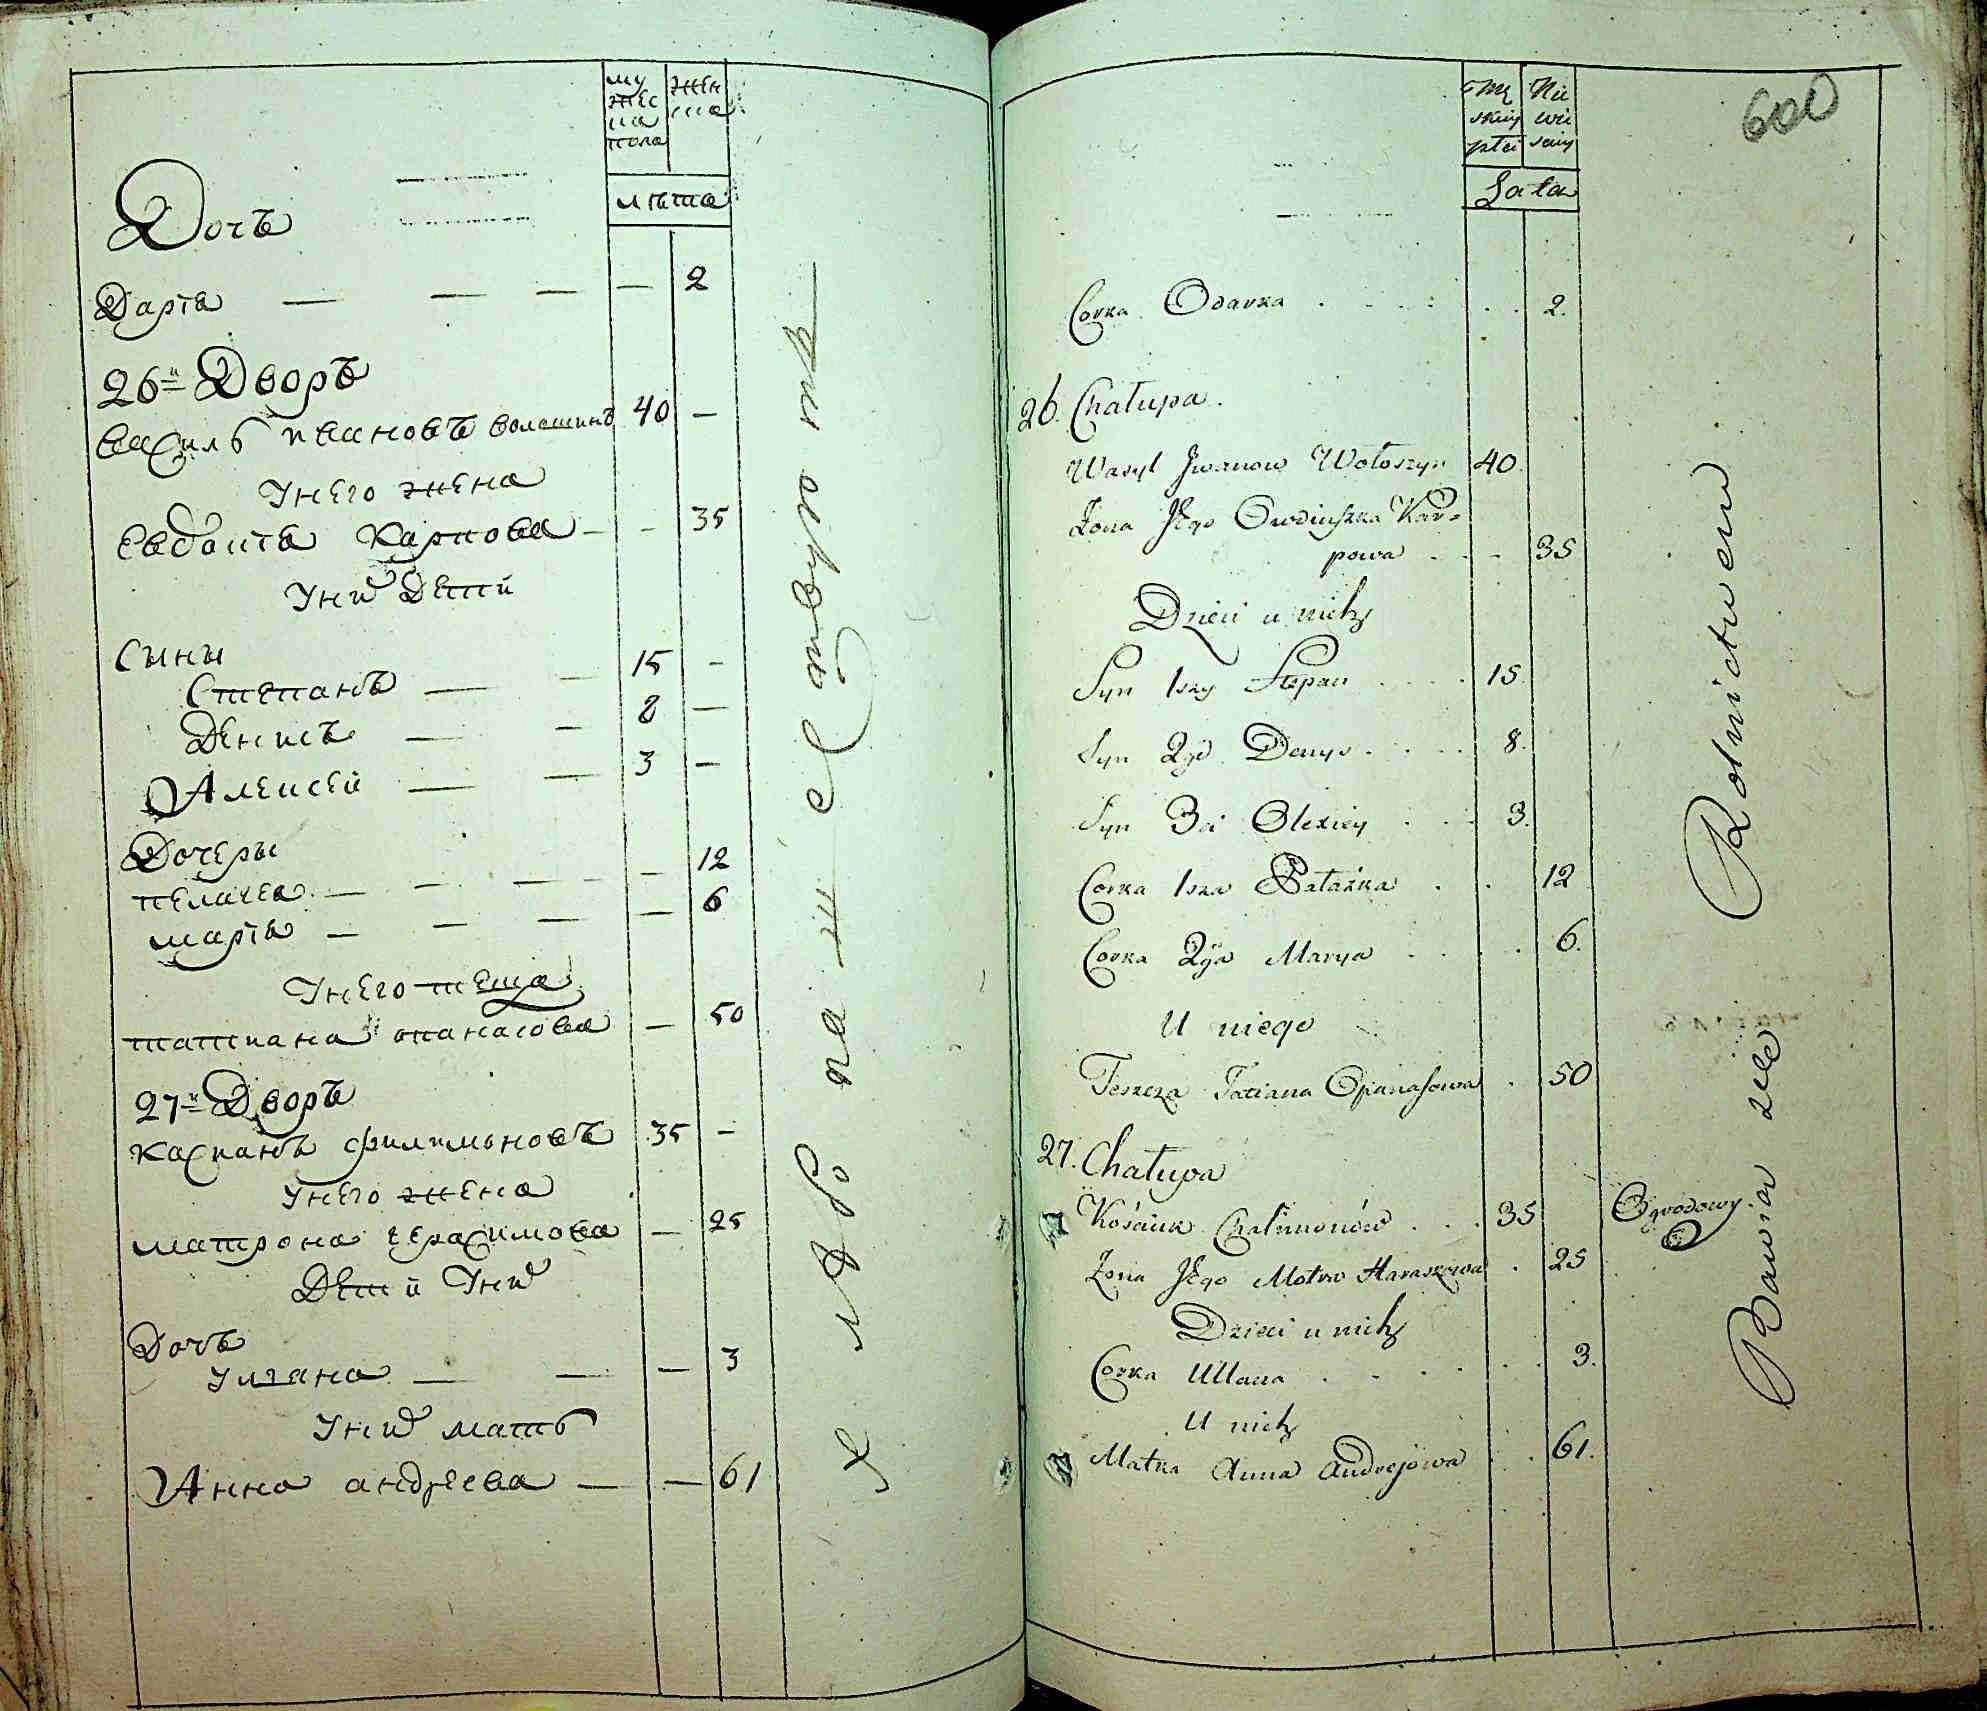 му
жес
ка
пола
жен
ска
лѣта
Дочь
Дарія — — — — 2
26й Дворъ
Василь Ивановъ Волошинъ 40 —
У него жена
Евдокія Карпова — — 35
У них дети
Сыны
Степанъ — — 15 —
Денисъ — — 8 —
Алексей — — 3 —
Дочеры
Пелагея — — — — 12
Марія — — — — 6
У него теща
Татиана Опанасова — 50
27й Дворъ
Касианъ Филимоновъ 35 —
У него жена
Матрона Герасимова — 25
Дети у них
Дочь
Улиана — — — 3
У них мать
Анна Андреева — — 61
Mę
skiey
płci
Nie
wie
sciey
Lata
600
Corka Odarka . . . . . . 2.
26. Chałupa.
Wasyl Jwanow Wołoszyn 40.
Żona Jego Owdiuszka Kar=
powa . . . 35
Dzieci u nich
Syn 1szy Stepan . . . . 15.
Syn 2gi Denys . . . . 8.
Syn 3ci Olexiey . . . 3.
Corka 1sza Pałażka . . 12
Corka 2ga Marya . . . . 6.
U niego
Teszcza Tatiana Opanasowa . 50
27. Chałupa
Kośaian Chalimonów . . . 35 Ogrodowy.
Żona Jego Motra Haraszowa . 25
Dzieci u nich
Corka Ullana . . . . . . 3.
U nich
Matka Anna Andrejowa . . 61.
Bawia sie Rolnictwem